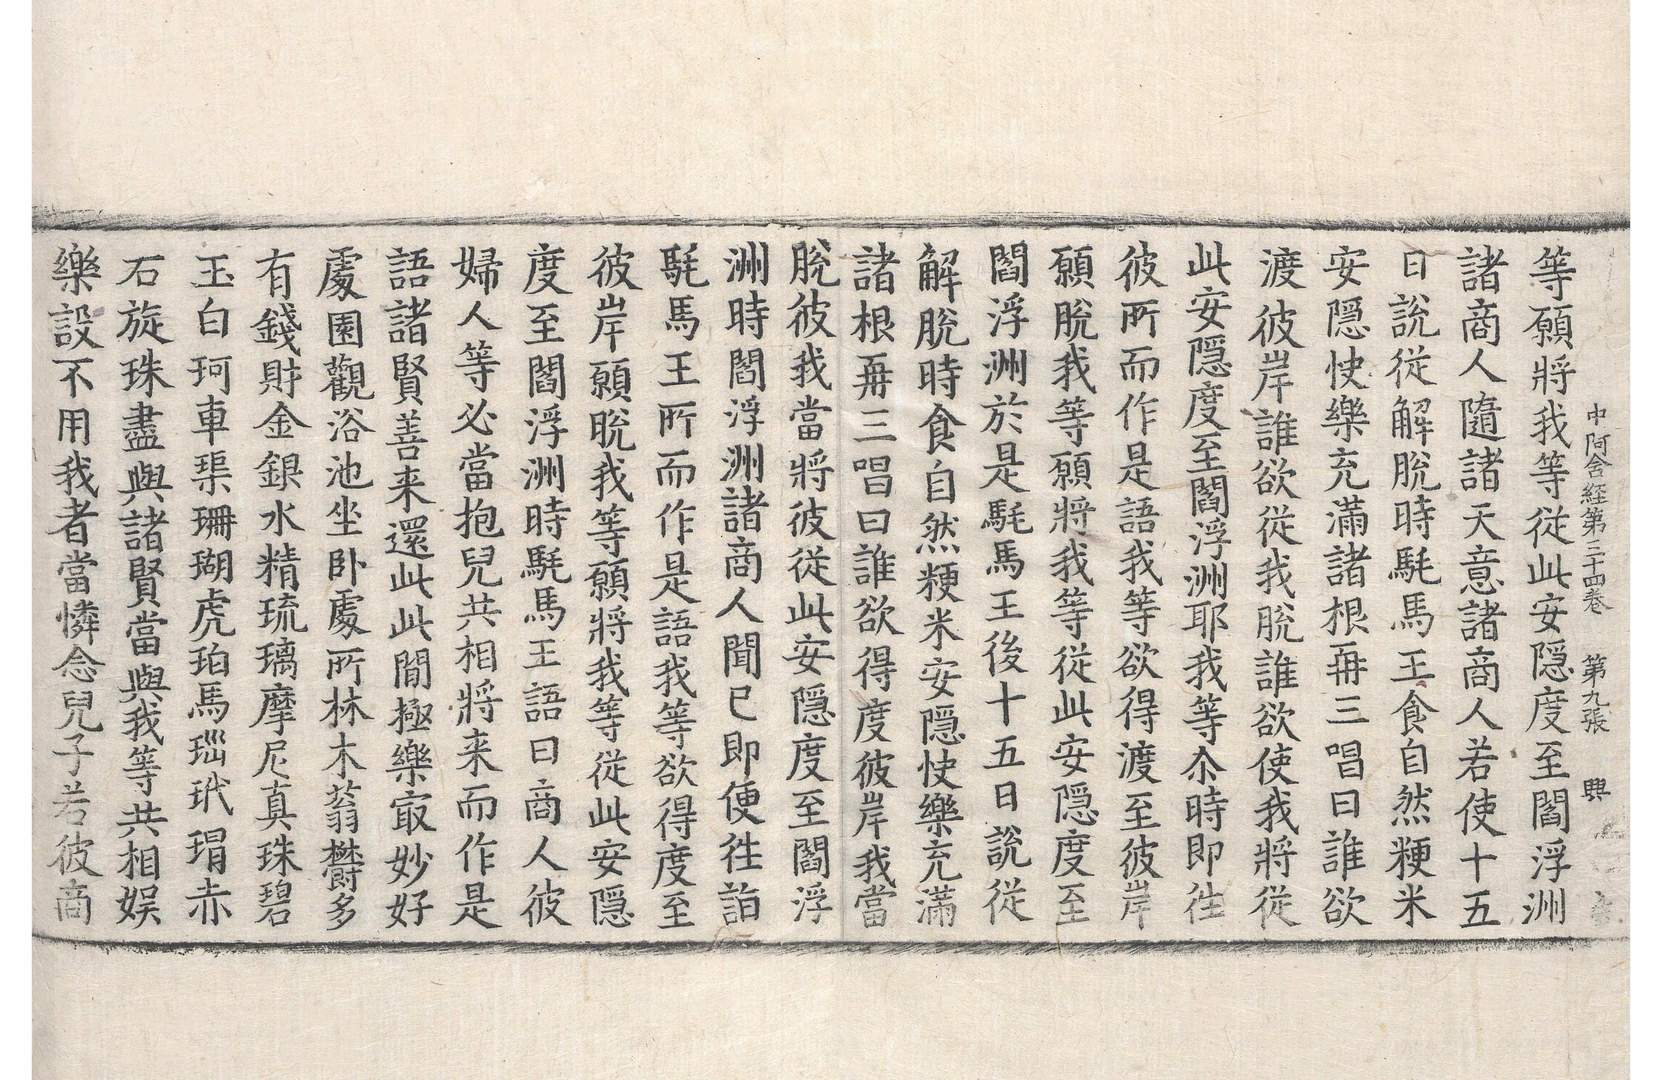 中阿含経第三十四巻　第九張　興
等願將我等從此安隠度至閻浮洲
諸商人隨諸天意諸商人若使十五
日說從解脫時髦馬王食自然粳米
安隠快樂充滿諸根再三唱曰誰欲
渡彼岸誰欲從我脫誰欲使我將從
此安隠度至閻浮洲耶我等尒時即徃
彼所而作是語我等欲得渡至彼岸
願脫我等願將我等從此安隠度至
閻浮洲於是髦馬王後十五日說從
解脫時食自然粳米安隠快樂充滿
諸根再三唱曰誰欲得度彼岸我當
脫彼我當將彼從此安隠度至閻浮
洲時閻浮洲諸商人聞已即便徃詣
髦馬王所而作是語我等欲得度至
彼岸願脫我等願將我等從此安隠
度至閻浮洲時髦馬王語曰商人彼
婦人等必當抱兒共相將来而作是
語諸賢善来還此此間極樂㝡妙好
處園觀浴池坐卧處所林木蓊欝多
有錢財金銀水精琉璃摩尼真珠碧
玉白珂車𤦲珊瑚虎珀馬瑙玳瑁赤
石旋珠盡與諸賢當與我等共相娛
樂設不用我者當憐念兒子若彼商